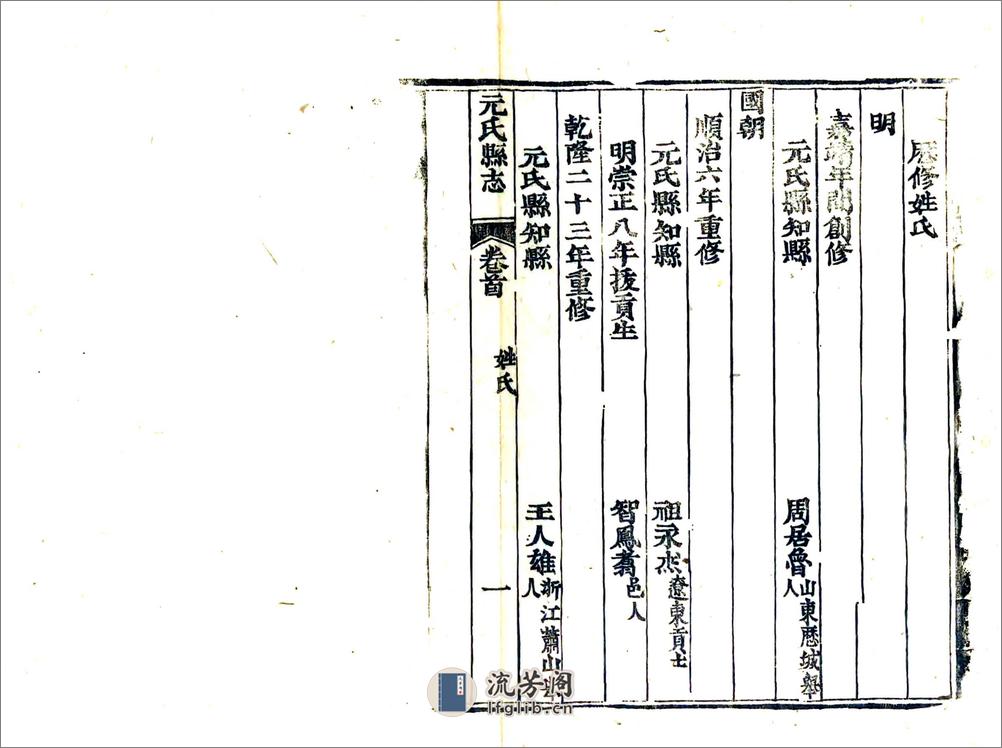 歷修姓氏
明
嘉靖年間創修
元氏縣知縣 周居魯 山東歷城舉人
國朝
順治六年重修
元氏縣知縣 祖永杰 遼東貢士
明崇正八年拔貢生 智鳳翥 邑人
乾隆二十三年重修
元氏縣知縣 王人雄 浙江蕭山舉人
元氏縣志 卷首 姓氏 一
流芳阁
lfglib.cn